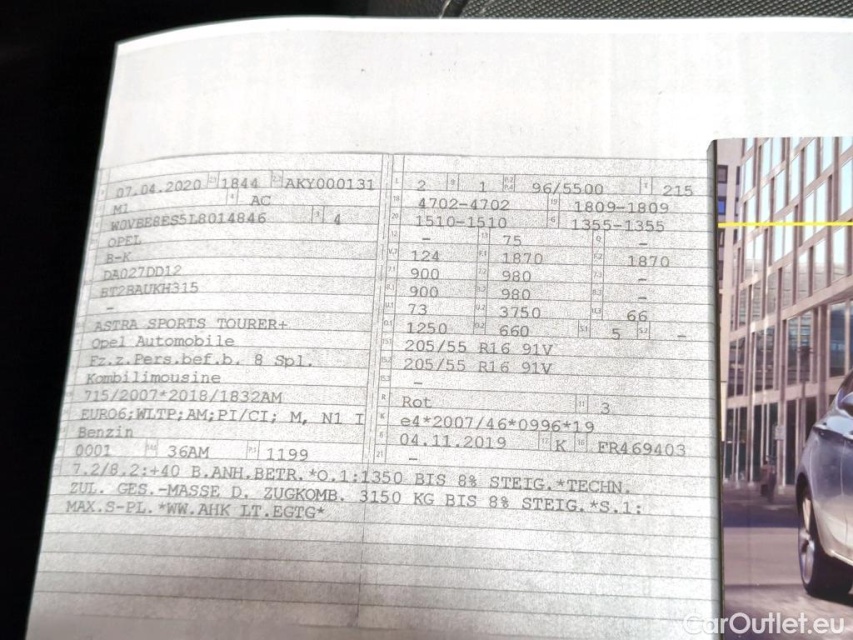 07.04.2020 1844 AKY000131 2 1 96/5500 215
M1 AC 4702-4702 1809-1809
W0VBE8ES5L8014846 4 1510-1510 1355-1355
OPEL - 75 -
B-K 124 1870 1870
DA027DD12 900 980 -
BT2BAUKH315 900 980 -
- 73 3750 66
ASTRA SPORTS TOURER+ 1250 660 5 -
Opel Automobile 205/55 R16 91V
Fz.z.Pers.bef.b. 8 Spl. 205/55 R16 91V
Kombilimousine -
715/2007*2018/1832AM Rot 3
EURO6;WLTP;AM;PI/CI; M, N1 I e4*2007/46*0996*19
Benzin 04.11.2019 K FR469403
0001 36AM 1199 -
7.2/8.2:+40 B.ANH.BETR.*O.1:1350 BIS 8% STEIG.*TECHN.
ZUL. GES.-MASSE D. ZUGKOMB. 3150 KG BIS 8% STEIG.*S.1:
MAX.S-PL.*WW.AHK LT.EGTG*
CarOutlet.eu